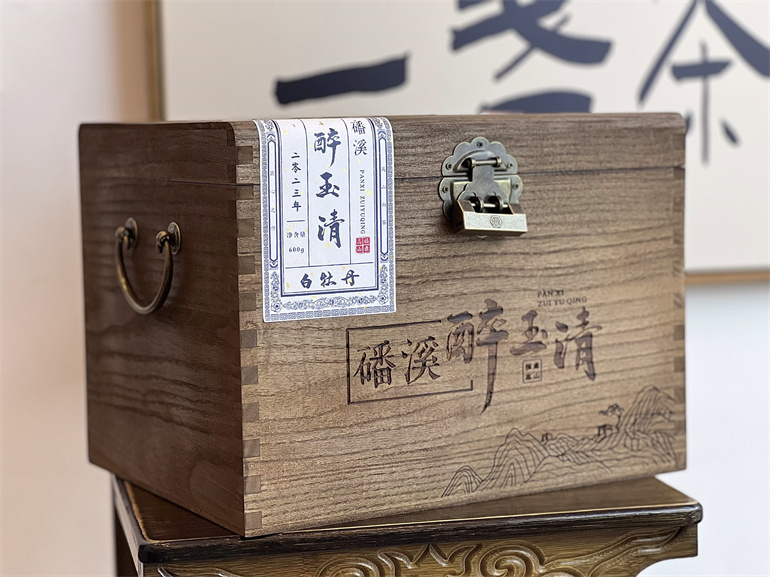 磻溪
PANXI ZUIYUQING
醉玉清
二零二三年
净含量
600g
白牡丹
PAN XI
ZUI YU QING
磻溪
醉玉清
茶